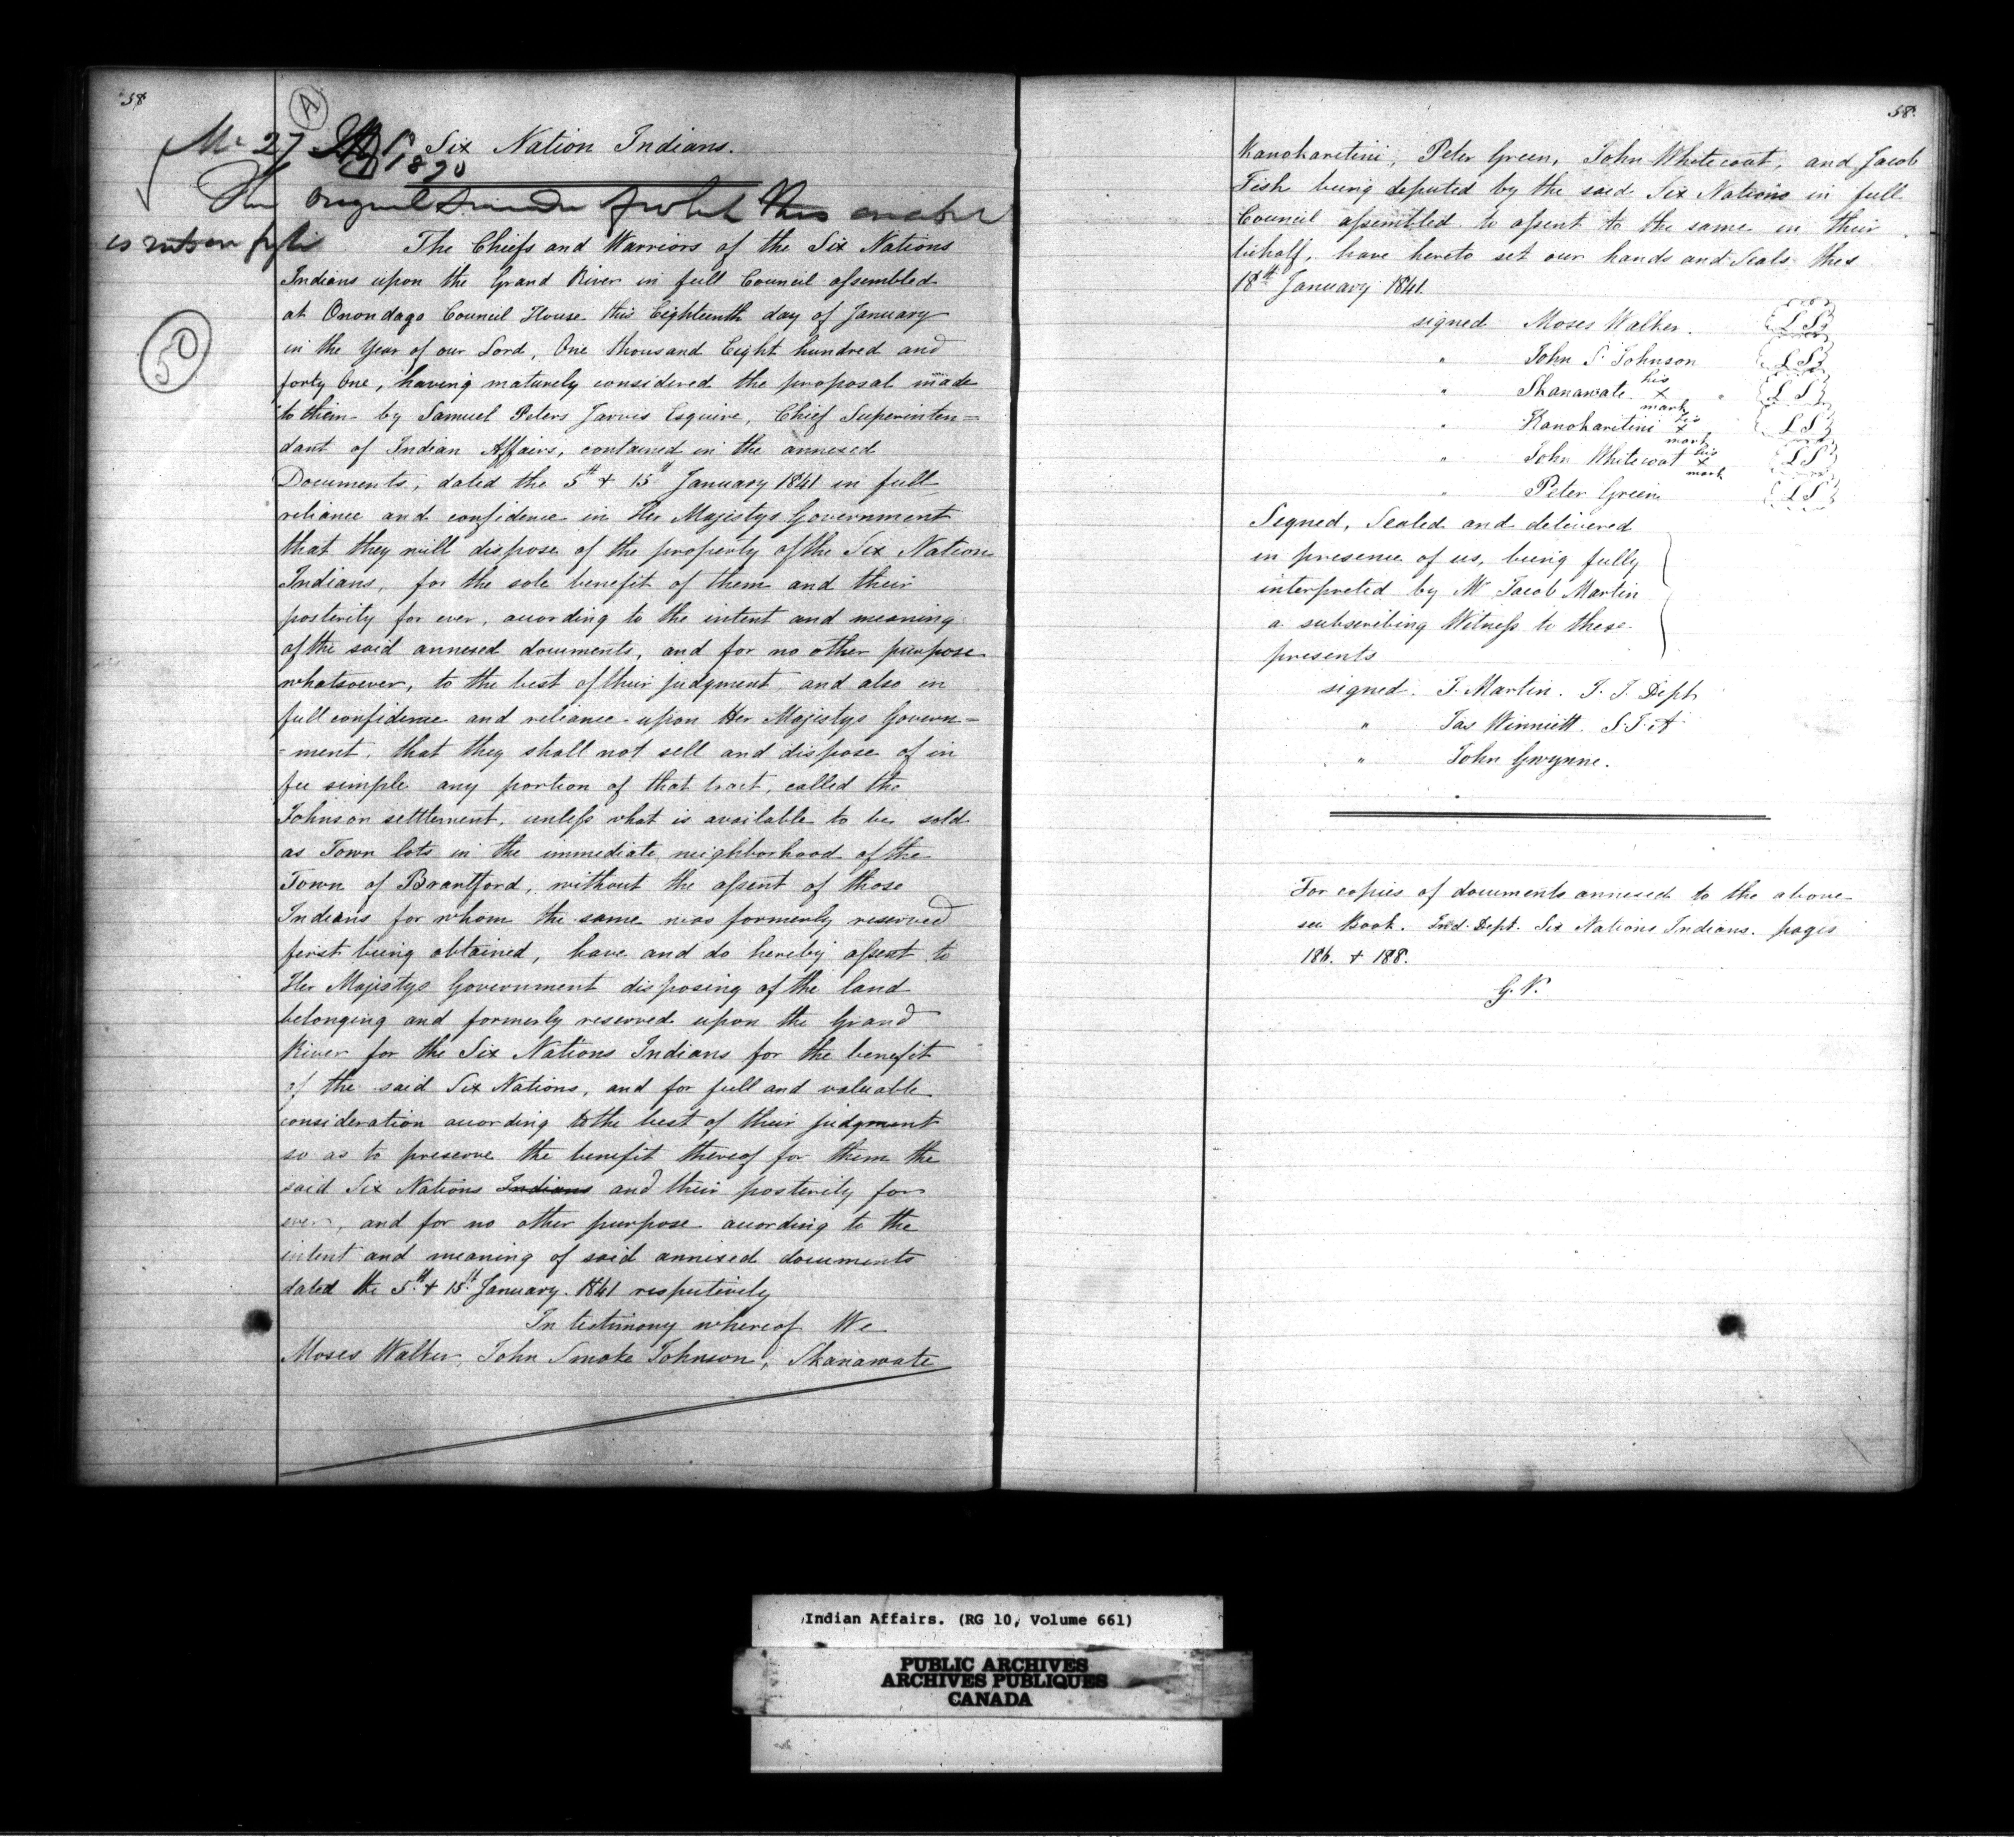 58
A
Six Nation Indians.
1890
50
The Chiefs and Warriors of the Six Nations
Indians upon the Grand River in full Council assembled
at Onondaga Council House this Eighteenth day of January
in the Year of our Lord, One thousand Eight hundred and
forty One, having maturely considered the proposal made
to them by Samuel Peters Jarvis Esquire, Chief Superinten=
dant of Indian Affairs, contained in the annexed
Documents, dated the 5th & 15th January 1841 in full
reliance and confidence in Her Majestys Government
that they will dispose of the property of the Six Nation
Indians, for the sole benefit of them and their
posterity for ever, according to the intent and meaning
of the said annexed documents, and for no other purpose
whatsoever, to the best of their judgment and also in
full confidence and reliance upon Her Majestys Govern=
=ment, that they shall not sell and dispose of in
fee simple any portion of that tract, called the
Johnson settlement, unless what is available to be sold
as Town lots in the immediate neighborhood of the
Town of Brantford, without the assent of those
Indians for whom the same was formerly reserved
first being obtained, have and do hereby assent to
Her Majestys Government disposing of the land
belonging and formerly reserved upon the Grand
River for the Six Nations Indians for the benefit
of the said Six Nations, and for full and valuable
consideration according to the best of their judgment
so as to preserve the benefit thereof for them the
said Six Nations Indians and their posterity for
ever, and for no other purpose according to the
intent and meaning of said annexed documents
dated the 5th & 15th January 1841 respectively
In testimony whereof We
Moses Walker, John Smoke Johnson, Skanawate
58
Kanokaretini, Peter Green, John Whitecoat, and Jacob
Fish being deputed by the said Six Nations in full
Council assembled to assent to the same in their
behalf, have hereto set our hands and Seals this
18th January 1841.
signed Moses Walker. L S
" John S. Johnson L S
" Skanawate his x mark L S
" Kanokaretini his x mark L S
" John Whitecoat his x mark L S
" Peter Green L S
Signed, Sealed and delivered
in presence of us, being fully
interpreted by Mr Jacob Martin
a subscribing Witness to these
presents
signed. J. Martin. I. I. Dept
" Jas Winniett. S.I.A
" John Gwynne.
For copies of documents annexed to the above
see Book. Ind. Dept. Six Nations Indians. pages
186. & 188.
G. V.
Indian Affairs. (RG 10, Volume 661)
PUBLIC ARCHIVES
ARCHIVES PUBLIQUES
CANADA